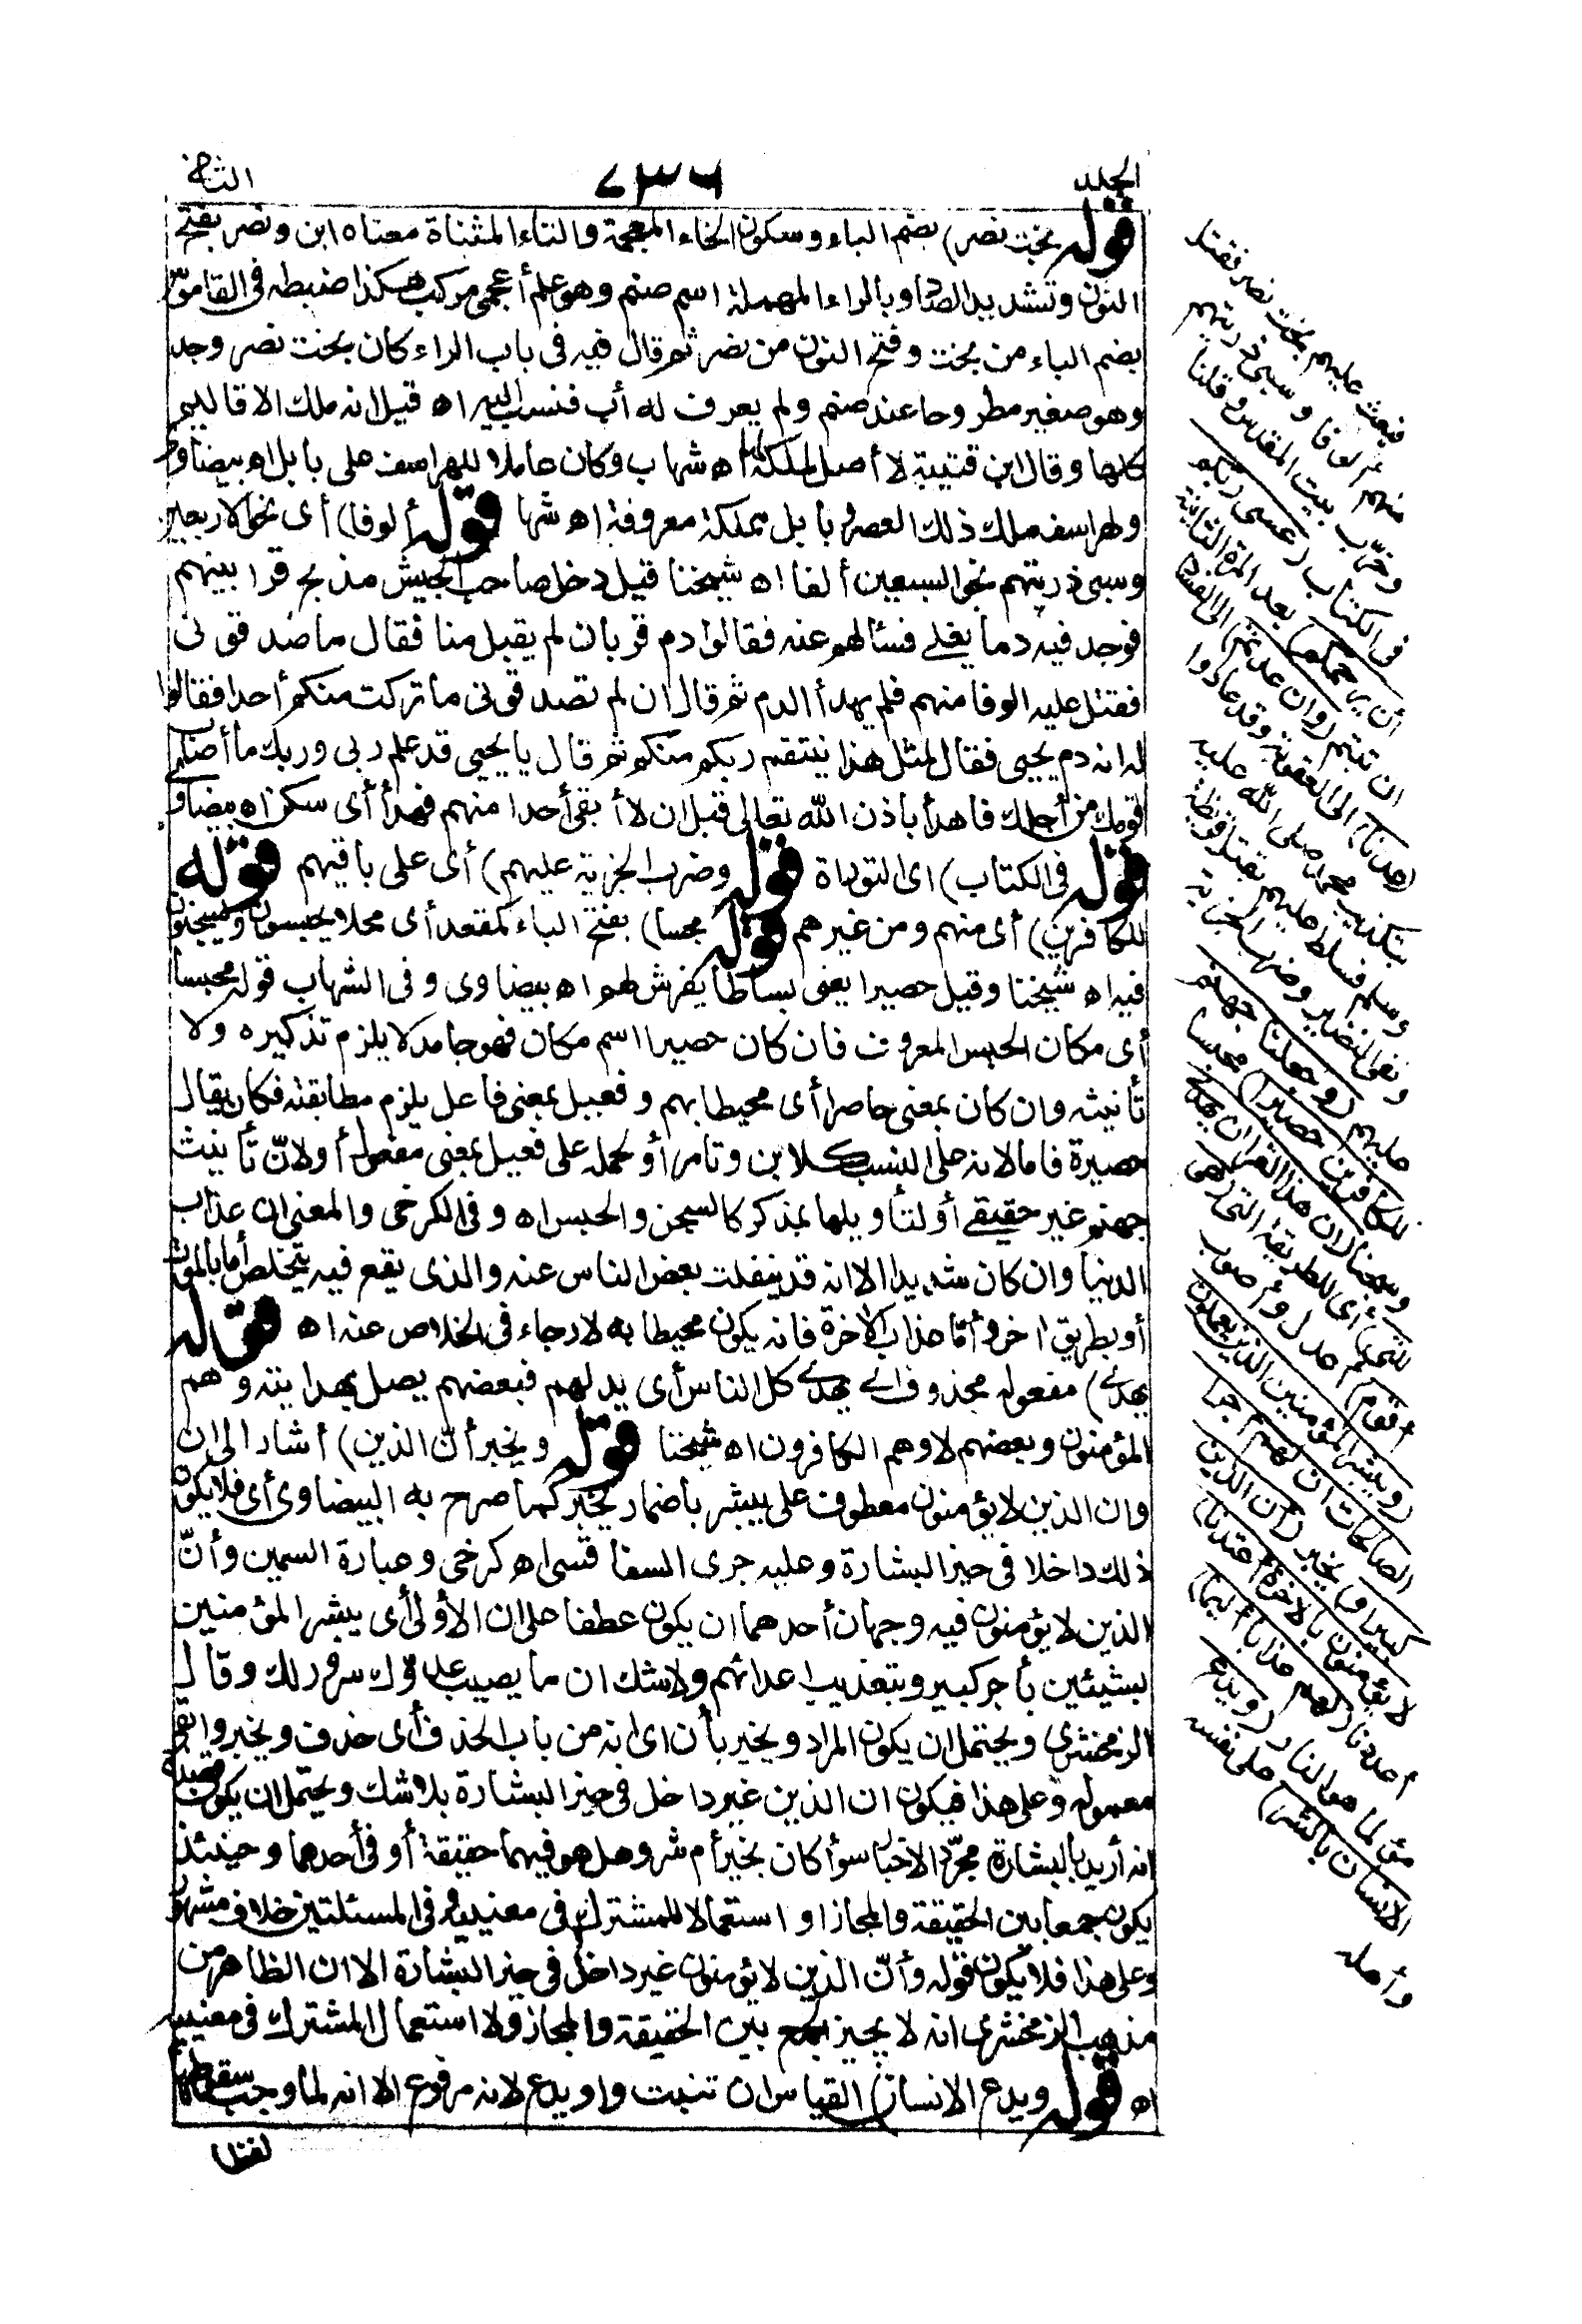 الجلد
٧٣٦
الثاني
قوله بخت نصر) بضم الباء وسكون الخاء المعجمة والتاء المثناة معناه ابن ونصر بفتح
النون وتشديد الصاد وبالراء المهملة اسم صنم وهو علم أعجمي مركب هكذا ضبطه في القاموس
بضم الباء من بخت وفتح النون من نصر ثم قال فيه في باب الراء كان بخت نصر وجد
وهو صغير مطروحا عند صنم ولم يعرف له أب فنسب اليه اه قيل انه ملك الاقاليم
كلها وقال ابن قتيبة لا أصل لملكه لها اه شهاب وكان عاملا للهراسف على بابل اه بيضاوي
ولهراسف ملك ذلك العصر وبابل مملكة معروفة اه شهاب قوله ألوفا) أى نحو الاربعين
وسبى ذريتهم نحو السبعين ألفا اه شيخنا قيل دخل صاحب الجيش مذبح قرابينهم
فوجد فيه دما يغلى فسألهم عنه فقالوا دم قربان لم يقبل منا فقال ما صدقوني
فقتل عليه الوفا منهم فلم يهدأ الدم ثم قال ان لم تصدقوني ما تركت منكم أحدا فقالوا
له انه دم يحيى فقال لمثل هذا ينتقم ربكم منكم ثم قال يا يحيى قد علم ربى وربك ما أصاب
قومك من أجلك فاهدأ باذن الله تعالى قبل ان لا أبقى أحدا منهم فهدأ أى سكن اه بيضاوي
قوله في الكتاب) اى التوراة قوله وضرب الجزية عليهم) أى على باقيهم قوله
للكافرين) أى منهم ومن غيرهم قوله محبسا) بفتح الباء كمقعد أى محلا يحبسون ويسجنون
فيه اه شيخنا وقيل حصيرا يعنى بساطا يفرش لهم اه بيضاوى وفى الشهاب قوله محبسا
أى مكان الحبس المعروف فان كان حصيرا اسم مكان فهو جامد لا يلزم تذكيره ولا
تأنيثه وان كان بمعنى حاصرا أى محيطا بهم وفعيل بمعنى فاعل يلزم مطابقته فكان يقال
حصيرة فاما لانه على النسب كلابن وتامر أو لحمله على فعيل بمعنى مفعول أو لانّ تأنيث
جهنم غير حقيقى أو لتأويلها بمذكر كالسجن والحبس اه وفى الكرخى والمعنى ان عذاب
الدنيا وان كان شديدا الا انه قد ينفلت بعض الناس عنه والذى يقع فيه يتخلص أما بالموت
أو بطريق اخر وأما عذاب الآخرة فانه يكون محيطا به لا رجاء فى الخلاص عنه اه قوله
يهدى) مفعوله محذوف اى يهدى كل الناس أى يدلهم فبعضهم يصل بهدايته وهم
المؤمنون وبعضهم لا وهم الكافرون اه شيخنا قوله ويخبر أنّ الذين) أشار الى ان
وان الذين لا يؤمنون معطوف على يبشر باضمار يخبر كما صرح به البيضاوى أى فلا يكون
ذلك داخلا فى حيز البشارة وعليه جرى السفاقسى اه كرخى وعبارة السمين وأنّ
الذين لا يؤمنون فيه وجهان أحدهما ان يكون عطفا على ان الأولى أى يبشر المؤمنين
بشيئين بأجر كبير وبتعذيب اعدائهم ولا شك ان ما يصيب عدوك سرور لك وقال
الزمخشرى ويحتمل ان يكون المراد ويخبر بأن اى انه من باب الحذف أى حذف ويخبر وابقى
معموله وعلى هذا فيكون ان الذين غير داخل فى حيز البشارة بلا شك ويحتمل ان يكون قصده
انه أريد بالبشارة مجرّد الاخبار سواء كان بخير أم شر وهل هو فيهما حقيقة أو فى أحدهما وحينئذ
يكون جمعا بين الحقيقة والمجاز او استعمالا للمشترك فى معنييه وفى المسئلتين خلاف مشهور
وعلى هذا فلا يكون قوله وأنّ الذين لا يؤمنون غير داخل فى حيز البشارة الا ان الظاهر من
مذهب الزمخشرى انه لا يجيز الجمع بين الحقيقة والمجاز ولا استعمال المشترك فى معنييه
اه قوله ويدع الانسان) القياس ان تثبت واو يدع لانه مرفوع الا انه لما وجب سقوطها
لفظا
فبعث عليهم بخت نصر فقتل
منهم ألوفا وسبى ذريتهم
وخرّب بيت المقدس وقلنا
فى الكتاب (عسى ربكم
أن يرحمكم) بعد المرة الثانية
ان تبتم (وان عدتم) الى الفساد
(عدنا) الى العقوبة وقد عادوا
بتكذيب محمد صلى الله عليه
وسلم فسلط عليهم بقتل قريظة
ونفى النضير وضرب الجزية
عليهم (وجعلنا جهنم
للكافرين حصيرا) محبسا
وسجنا (ان هذا القرآن يهدى
للتى) أى للطريقة التى (هى
أقوم) أعدل وأصوب
(ويبشر المؤمنين الذين يعملون
الصالحات ان لهم أجرا
كبيرا و) يخبر (أن الذين
لا يؤمنون بالآخرة أعتدنا)
أعددنا (لهم عذابا أليما)
مؤلما هو النار (ويدع
الانسان بالشر) على نفسه
وأهله